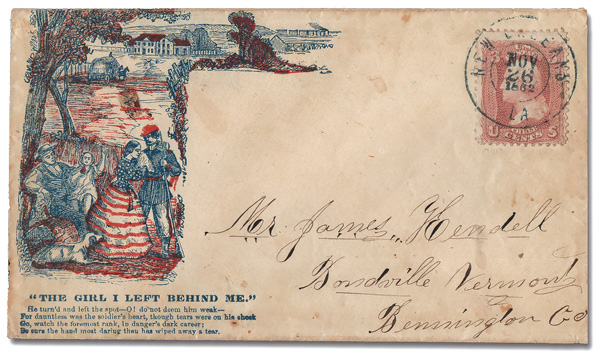 NEW ORLEANS
NOV
26
1862
LA
U 3
CENTS
Mr. James Kendell
Bondville Vermont
Bennington Co
"THE GIRL I LEFT BEHIND ME."
He turn'd and left the spot—O! do not deem him weak—
For dauntless was the soldier's heart, though tears were on his cheek
Go, watch the foremost rank, in danger's dark career;
Be sure the hand most daring there has wiped away a tear.